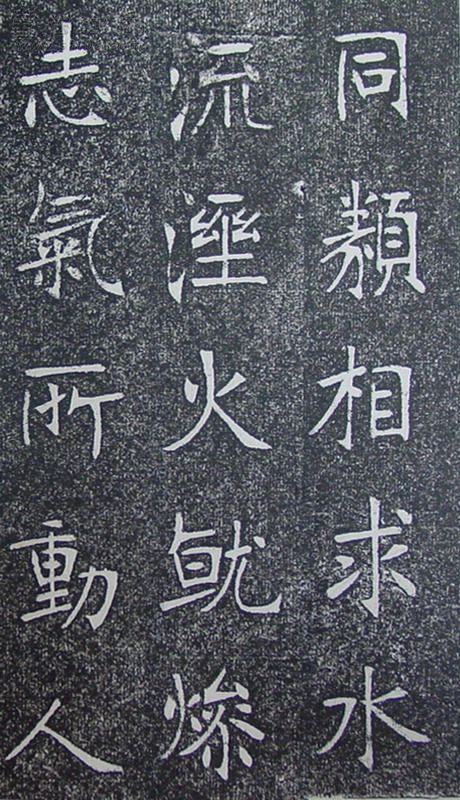 同類相求水
流溼火就燥
志氣所動人